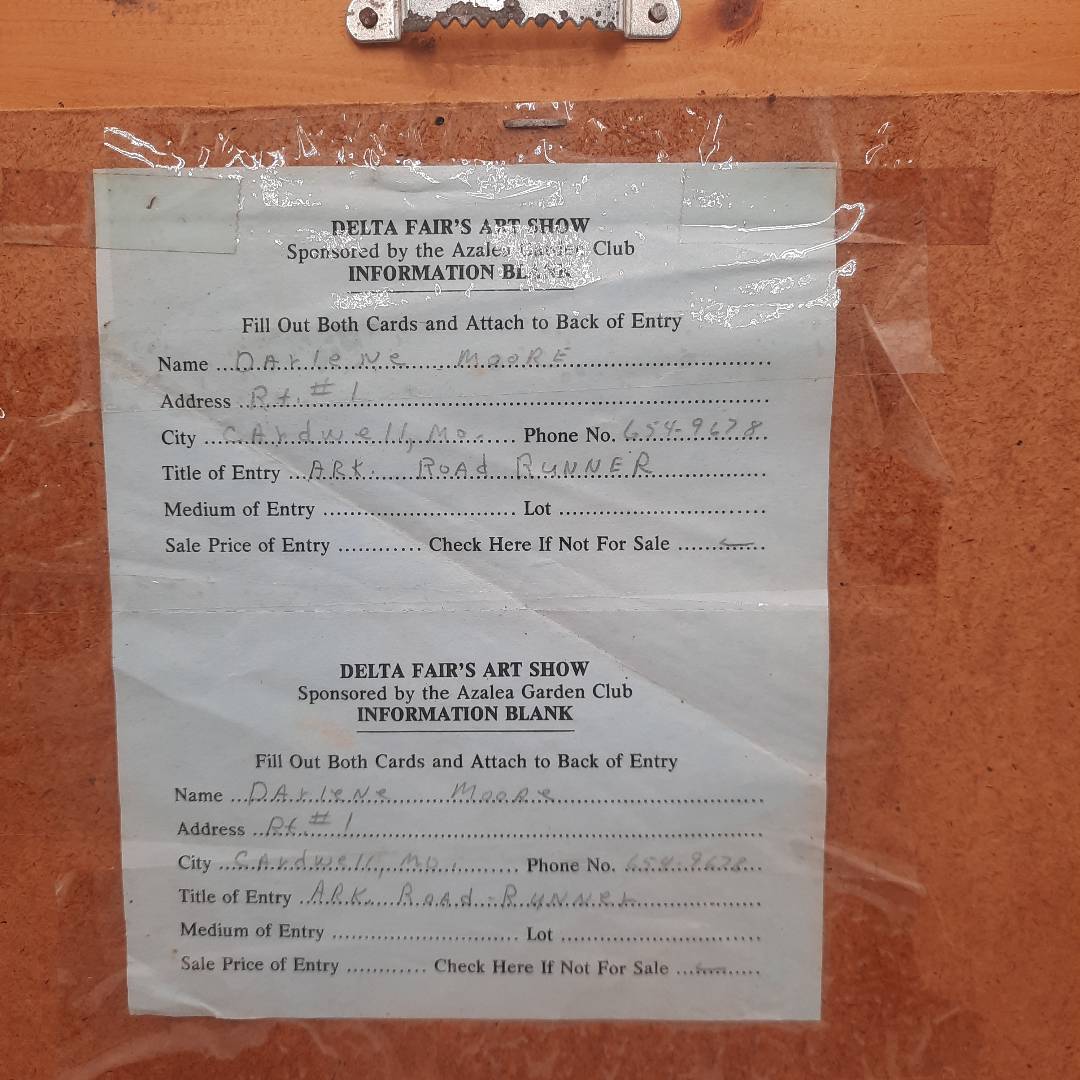 DELTA FAIR'S ART SHOW
Sponsored by the Azalea Garden Club
INFORMATION BLANK
Fill Out Both Cards and Attach to Back of Entry
Name ... DArleNe MooRE
Address ... Rt. # 1
City ... CArdwell, Mo. ... Phone No. 654-9678
Title of Entry ... ARK. RoAd RUNNER
Medium of Entry ... Lot ...
Sale Price of Entry ... Check Here If Not For Sale ...
DELTA FAIR'S ART SHOW
Sponsored by the Azalea Garden Club
INFORMATION BLANK
Fill Out Both Cards and Attach to Back of Entry
Name ... DArleNe MooRe
Address ... Rt. # 1
City ... CArdwell, Mo. ... Phone No. 654-9678
Title of Entry ... ARK. RoAd-RuNNer
Medium of Entry ... Lot ...
Sale Price of Entry ... Check Here If Not For Sale ...